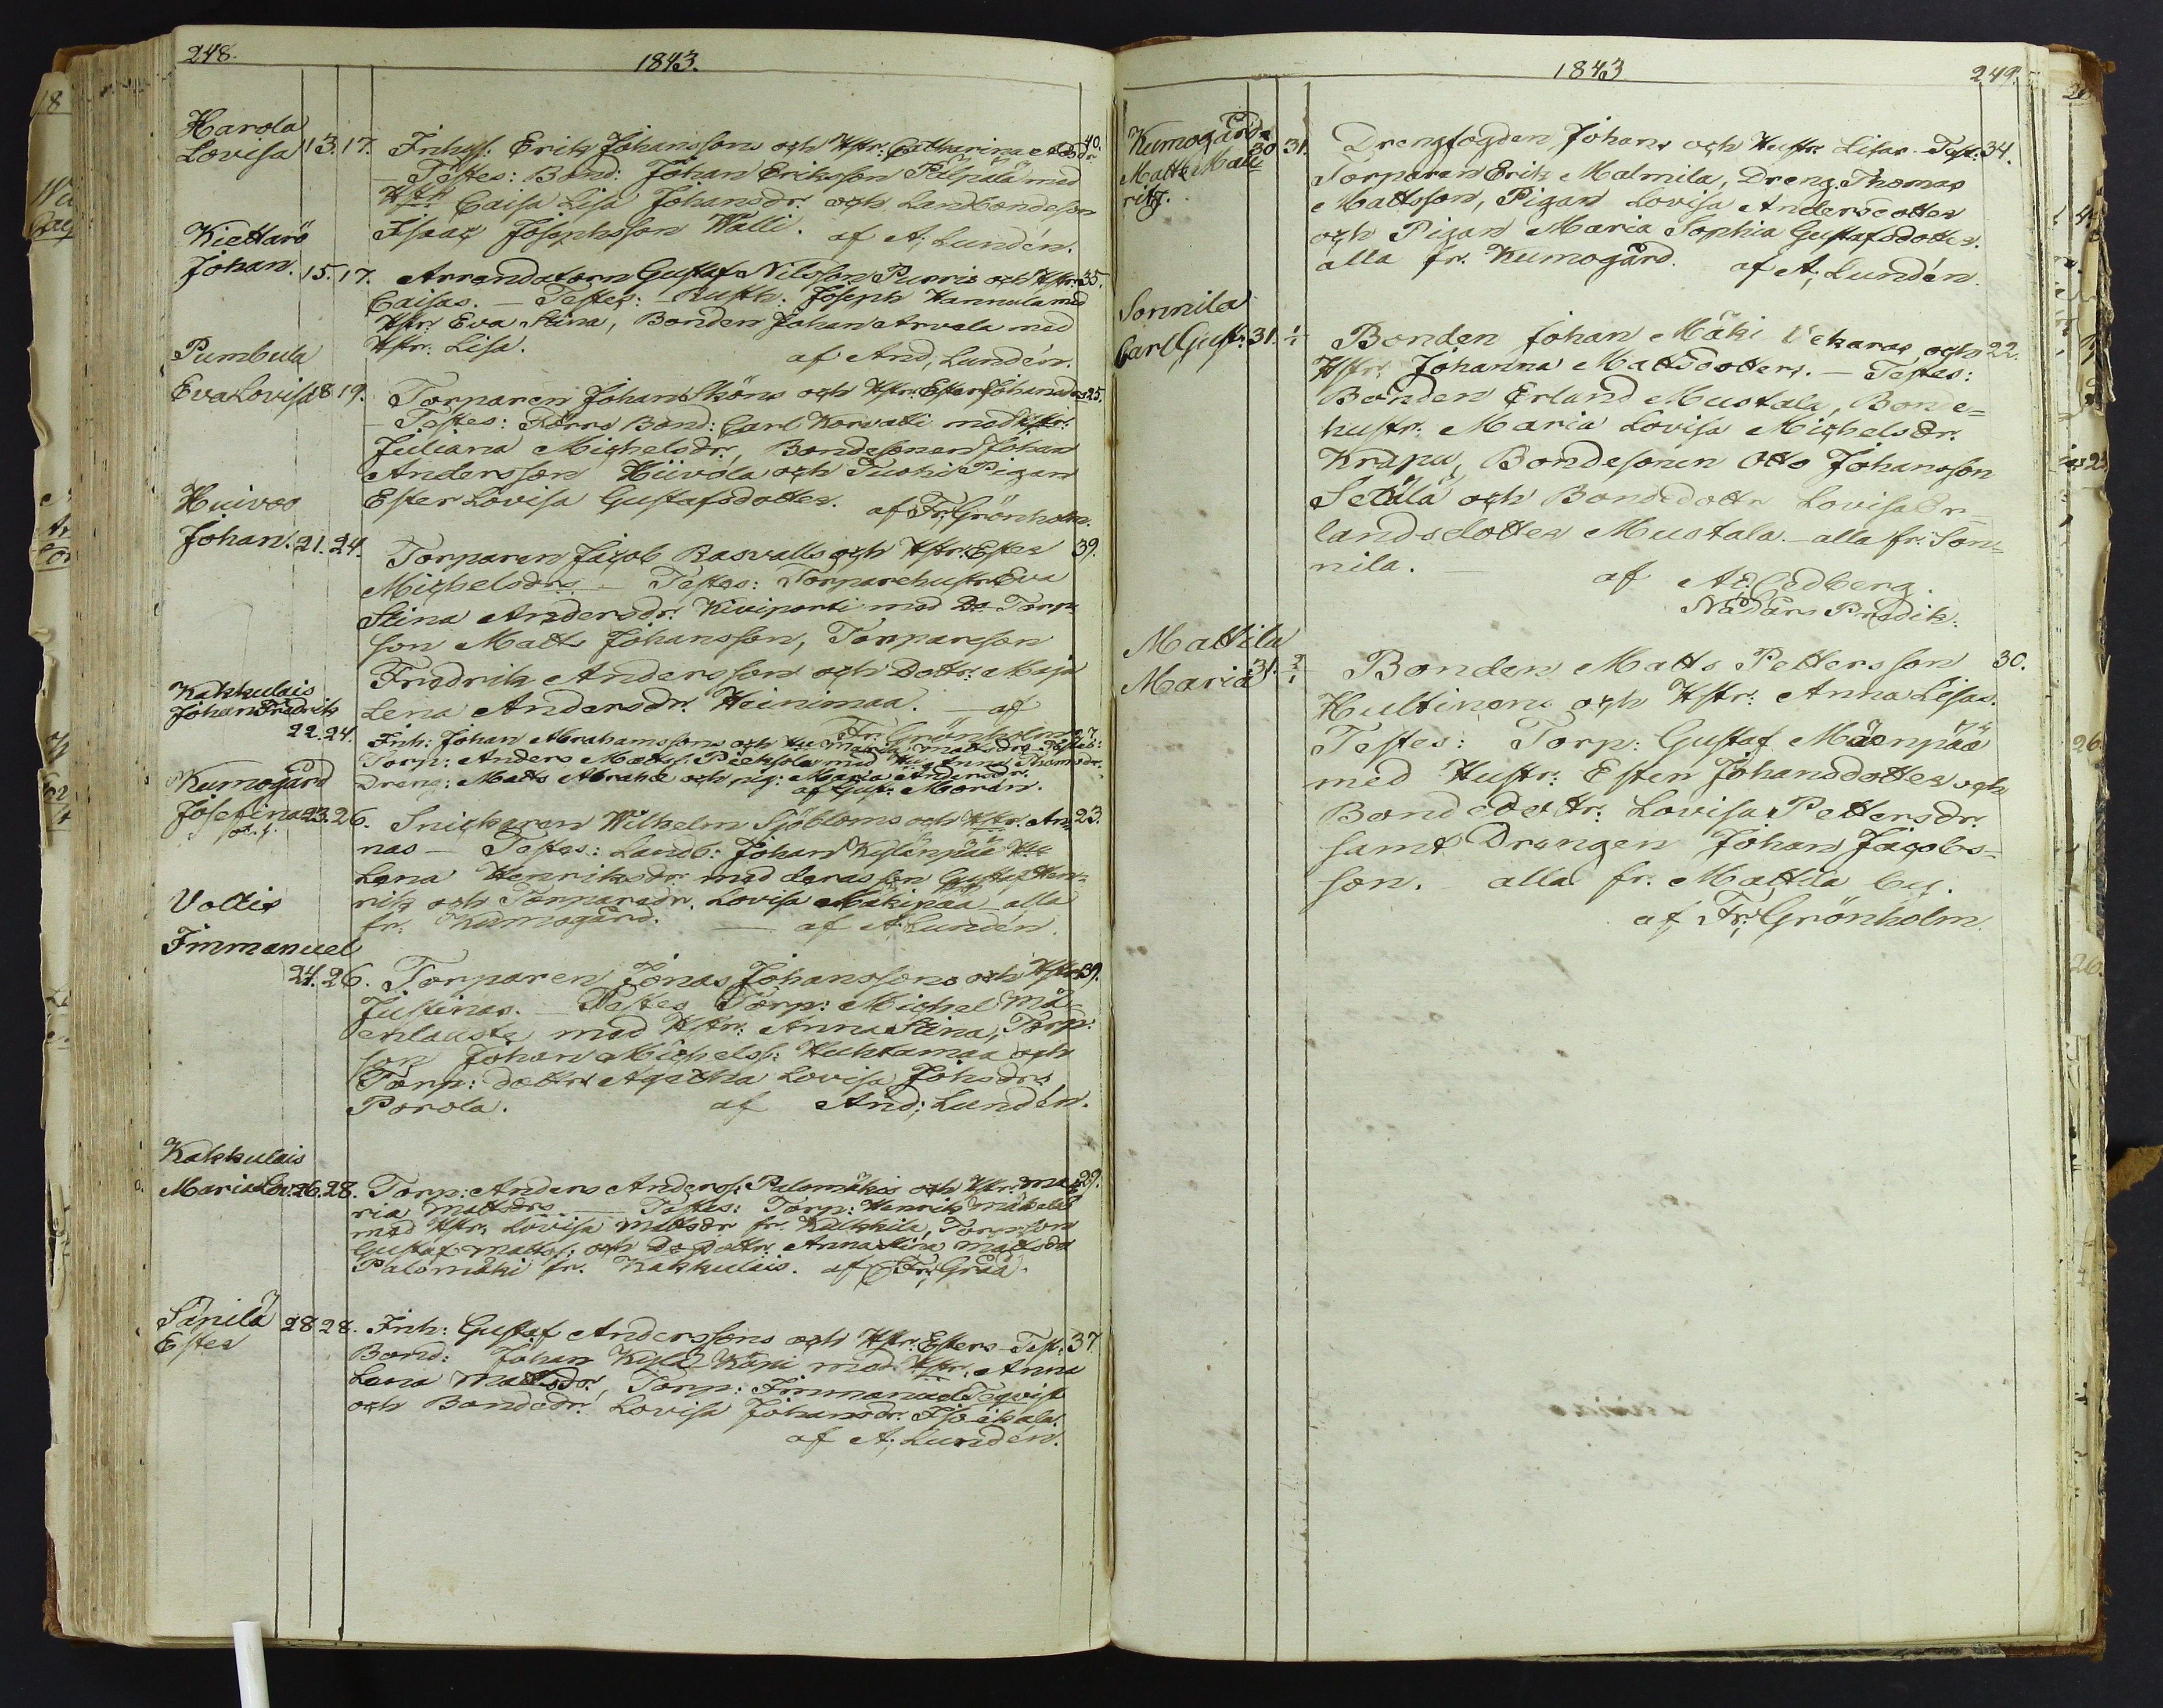 248.
1843.
Harola
Lovisa 13. 17. Inhys: Erik Johanssons och Hstr: Catharina And:dr 40.
— Testes: Bond: Johan Eriksson Pilpala med
Hstr Caisa Lisa Johansdr: och Landbondeson
Isaac Josephsson Walli. af A; Lundén.
Kiettarö
Johan. 15. 17. Arrendatorn Gustaf Nilsson Purris och Hstr: 35.
Caisas. — Testes: Rusth: Joseph Hannula med
Hstr: Eva Stina, Bonden Johan Arvela med
Hstr: Lisa. af And; Lundén.
Pumbula
Eva Lovisa 18 19. Torparen Johan Sköns och Hstr: Ester Johansdrs 25.
— Testes: Förra Bond: Carl Korvatti med Hstr:
Juliana Michelsdr, Bondesonen Johan
Andersson Hiivola och Pigan
Ester Lovisa Gustafsdotter. af Fr; Grönholm.
Huivoo
Johan. 21. 24. Torparen Jacob Rasvalls och Hstr: Ester 39.
Michelsdrs — Testes: Torparehustr: Eva
Stina Andersdr: Kiviporti med Do Torp:
son Matts Johansson, Torpareson
Fredrik Andersson och Dottr: Maja
Lena Andersdr: Heinimaa. — af
Fr: Grönholm
Kakkulais
Johan Fredrik
22. 24. Inh: Johan Abrahamssons och Hu Maria Mattsdrs Testes: 27.
Torp: Anders Matts: Peeksola med Hu Anna Thomsdr.
Dreng: Matts Abrah: och pig: Maria Andersdr.
af Gust: Morén.
Kumogård
Josefina 23. 26. Snickaren Wilhelm Sjöbloms och Hstr: An= 23.
nas — Testes: Landb: Johan Kylänpää Hu
Lena Henriksdr: med deras son Gustaf Hen=
rik och Torparedr. Lovisa Mäkipää alla
fr. Kumogård. — af A; Lundén.
Voltis
Immanuel
24. 26. Torparen Jonas Johanssons och Hstr: 39.
Justinas. — Testes Torp: Michel Mä
enlausta med Hstr: Anna Stina, Torp:
son Johan Michels: Huhtamaa och
Torp: dottr: Agatha Lovisa Johsdr:
Porola. af And; Lundén.
Kakkulais
Maria Lov: 26. 28. Torp: Anders Anders: Palomäkis och Hstr: Ma= 29.
ria Mattsdrs — Testes: Torp: Henrik Mäkelä
med Hstr: Lovisa Mattsdr fr. Kulkkila, Torp:son
Gustaf Matts: och Do Dottr: Anna Stina Mattsdr
Palomäki fr. Kakkulais. af Fr; Gråå.
Säpilä
Ester 28 28. Inh: Gustaf Anderssons och Hstr: Esters Test: 37.
Bond: Johan Kylä Käpi med Hstr: Anna
Lena Mattsdr, Torp: Immanuel Teqvist
och Bondedr: Lovisa Johansdr. Iso
af A; Lundén.
1843
249.
Kumogårds
Matts Mau=
ritz. 30 31. Drengfogden Johans och Hustr: Lisas Test: 34.
Torparen Erik Malmila, Dreng. Thomas
Mattsson, Pigan Lovisa Andersdotter
och Pigan Maria Sophia Gustafsdotter.
alla fr. Kumogård. af A; Lundén.
Sonnila
Carl Gust: 31. 1/1 Bonden Johan Mäki Uckaras och 22.
Hstr: Johanna Mattsdotters. — Testes:
Bonden Erland Mustala, Bonde=
hustr: Maria Lovisa Michelsdr.
Krapu, Bondesonen Otto Johansson
Setälä och Bondedottr Lovisa Er=
landsdotter Mustala. alla fr. Son=
nila. — af Ad: Cedberg.
Nådårs Predik:
Mattila
Maria 31. 2/1 Bonden Matts Pettersson 30.
Hultinens och Hstr: Anna Lisas.
Testes: Torp: Gustaf Mäenpää
med Hustr: Ester Johansdotter och
Bondedottr: Lovisa Pettersdr.
samt Drengen Johan Jacobs=
son. alla fr. Mattila by.
af Fr; Grönholm.